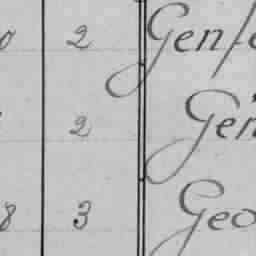 0 2 Genf
2 Gen
8 3 Geo